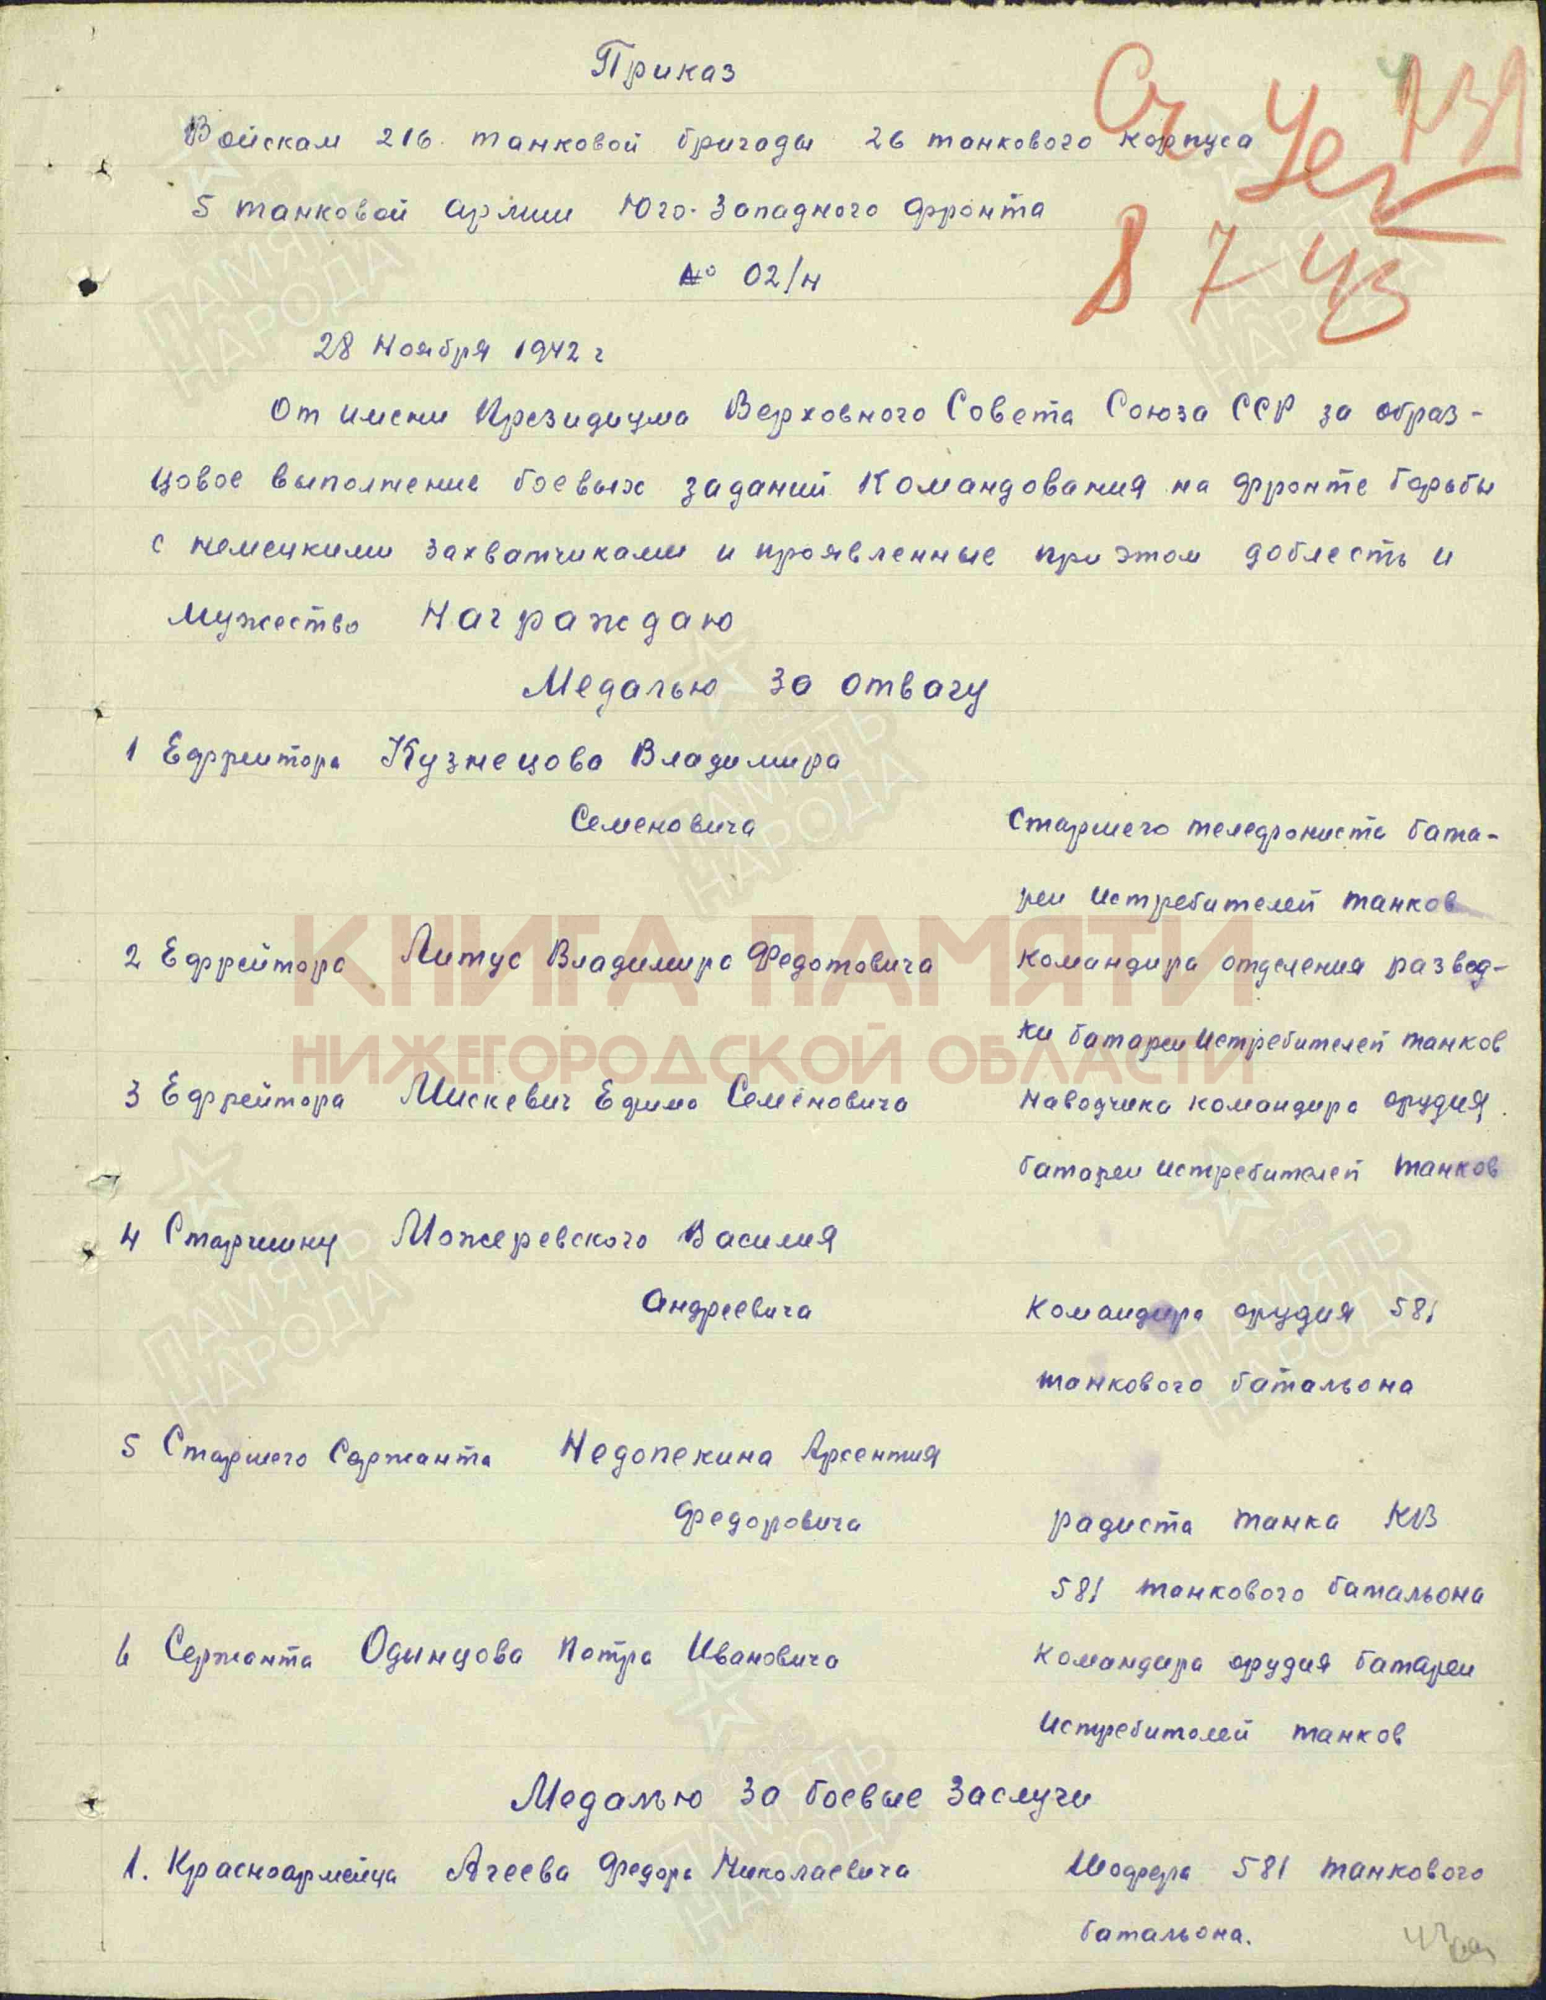 Приказ
Войскам 216 танковой бригады 26 танкового корпуса
5 танковой армии Юго-Западного фронта
№ 02/н
28 Ноября 1942 г
От имени Президиума Верховного Совета Союза ССР за образ-
цовое выполнение боевых заданий Командования на фронте борьбы
с немецкими захватчиками и проявленные при этом доблесть и
мужество Награждаю
Медалью за отвагу
1 Ефрейтора Кузнецова Владимира
Семеновича Старшего телефониста бата-
реи истребителей танков
2 Ефрейтора Литус Владимира Федотовича командира отделения развед-
ки батареи истребителей танков
3 Ефрейтора Мискевич Ефима Семеновича наводчика командира орудия
батареи истребителей танков
4 Старшину Можеревского Василия
Андреевича Командира орудия 581
танкового батальона
5 Старшего Сержанта Недопекина Арсентия
Федоровича радиста танка КВ
581 танкового батальона
6 Сержанта Одинцова Петра Ивановича командира орудия батареи
Истребителей танков
Медалью за боевые заслуги
1. Красноармейца Агеева Федора Николаевича Шофера 581 танкового
батальона.
КНИГА ПАМЯТИ
НИЖЕГОРОДСКОЙ ОБЛАСТИ
ПАМЯТЬ
НАРОДА